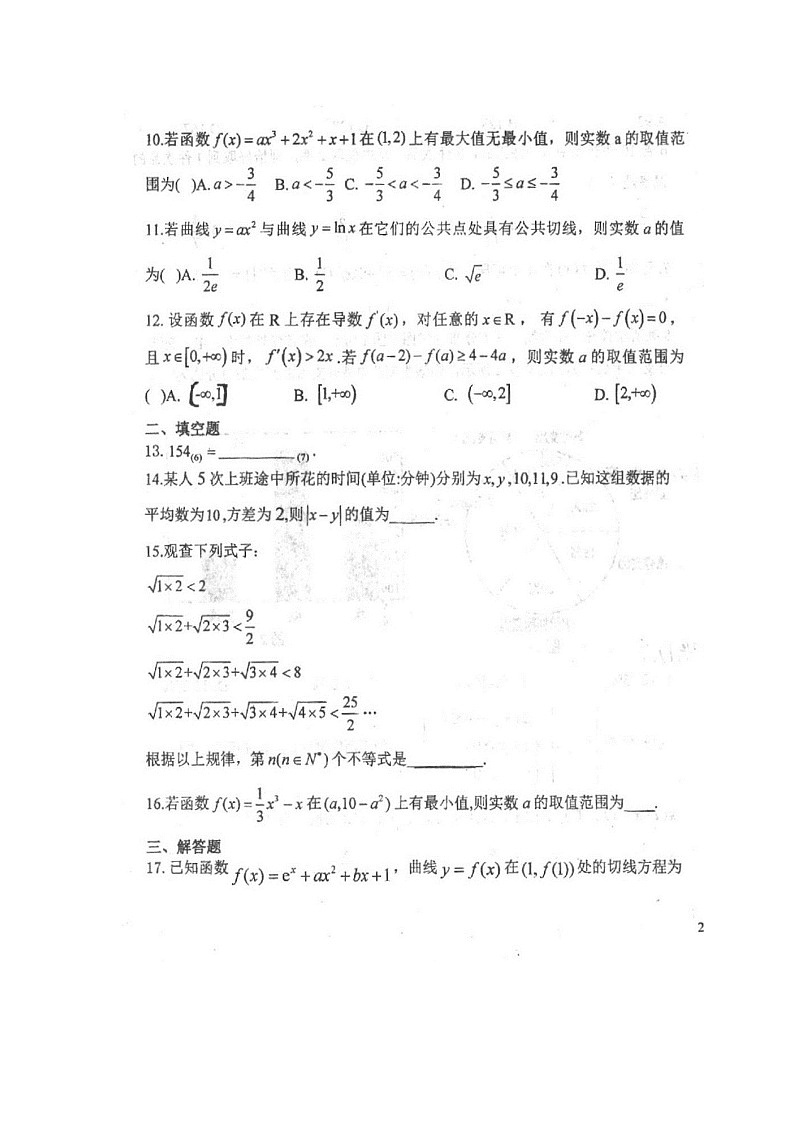 10.若函数 f(x)=ax³+2x²+x+1在(1,2)上有最大值无最小值，则实数 a 的取值范
围为( )A. a>-3/4 B. a<-5/3 C. -5/3<a<-3/4 D. -5/3≤a≤-3/4
11.若曲线 y=ax² 与曲线 y=lnx 在它们的公共点处具有公共切线，则实数 a 的值
为( )A. 1/2e B. 1/2 C. √e D. 1/e
12. 设函数 f(x) 在 R 上存在导数 f′(x)，对任意的 x∈R ， 有 f(-x)-f(x)=0 ，
且 x∈[0,+∞) 时， f′(x)>2x .若 f(a-2)-f(a)≥4-4a ，则实数 a 的取值范围为
( )A. (-∞,1] B. [1,+∞) C. (-∞,2] D. [2,+∞)
二、填空题
13. 154₍₆₎ = ________ ₍₇₎ .
14.某人 5 次上班途中所花的时间(单位:分钟)分别为 x, y ,10,11,9 .已知这组数据的
平均数为10 ,方差为 2,则|x-y| 的值为_____.
15.观查下列式子：
√1×2<2
√1×2+√2×3<9/2
√1×2+√2×3+√3×4<8
√1×2+√2×3+√3×4+√4×5<25/2 …
根据以上规律，第 n(n∈N*) 个不等式是________.
16.若函数 f(x)=1/3x³-x 在 (a,10-a²) 上有最小值,则实数 a 的取值范围为____.
三、解答题
17. 已知函数 f(x)=eˣ+ax²+bx+1，曲线 y=f(x) 在 (1, f(1)) 处的切线方程为
2